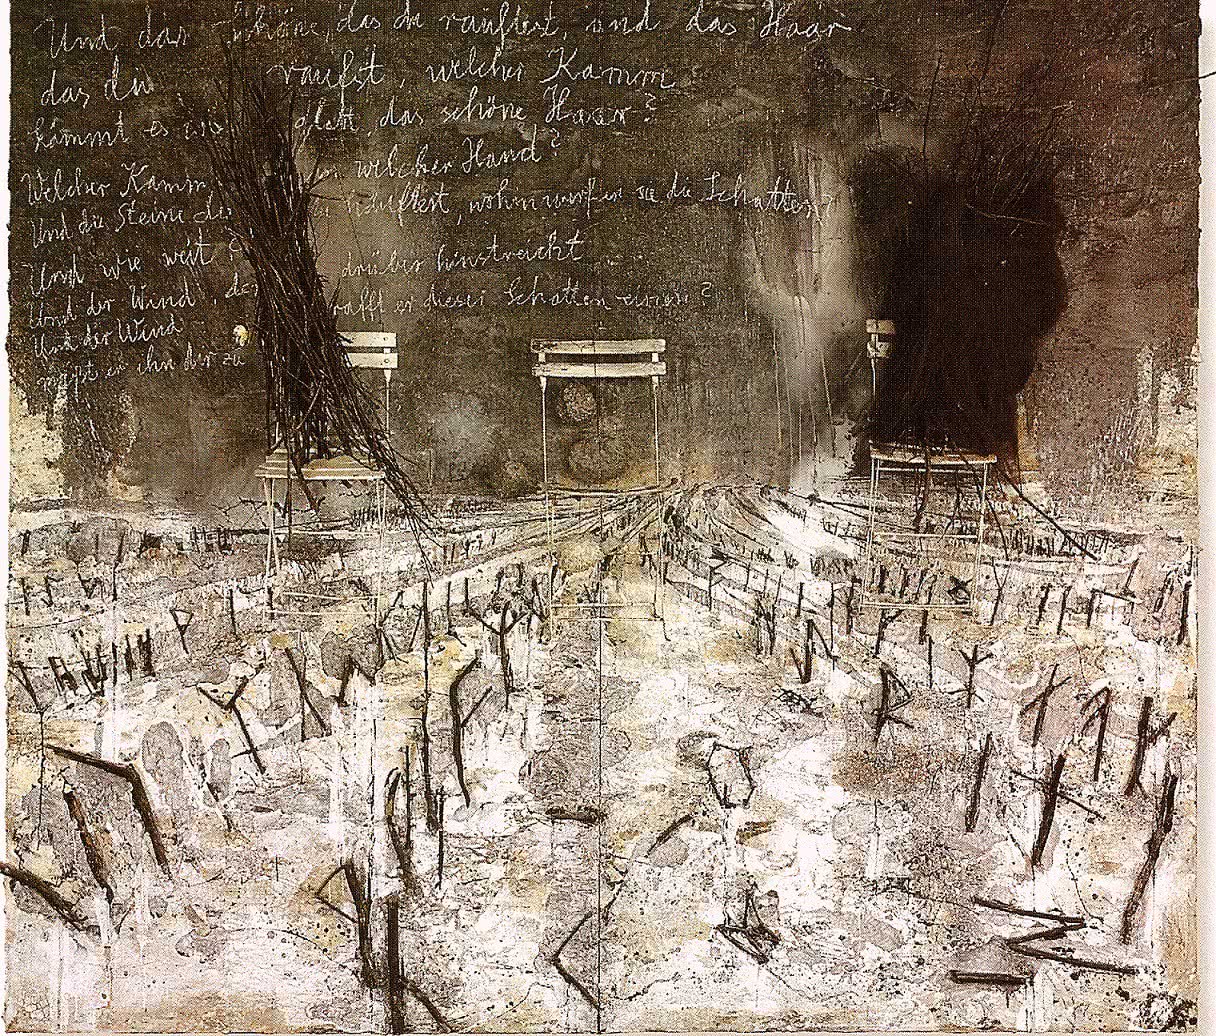 Und das Schöne, das du rauftest, und das Haar
das du raufst, welcher Kamm
kämmt es glatt, das schöne Haar?
Welcher Kamm welcher Hand?
Und die Steine die häuftest, wohin werfen sie die Schatten,
Und wie weit?
Und der Wind, der drüber hinstreicht
Und der Wind rafft er dieser Schatten einen?
mißt er ihn dir zu